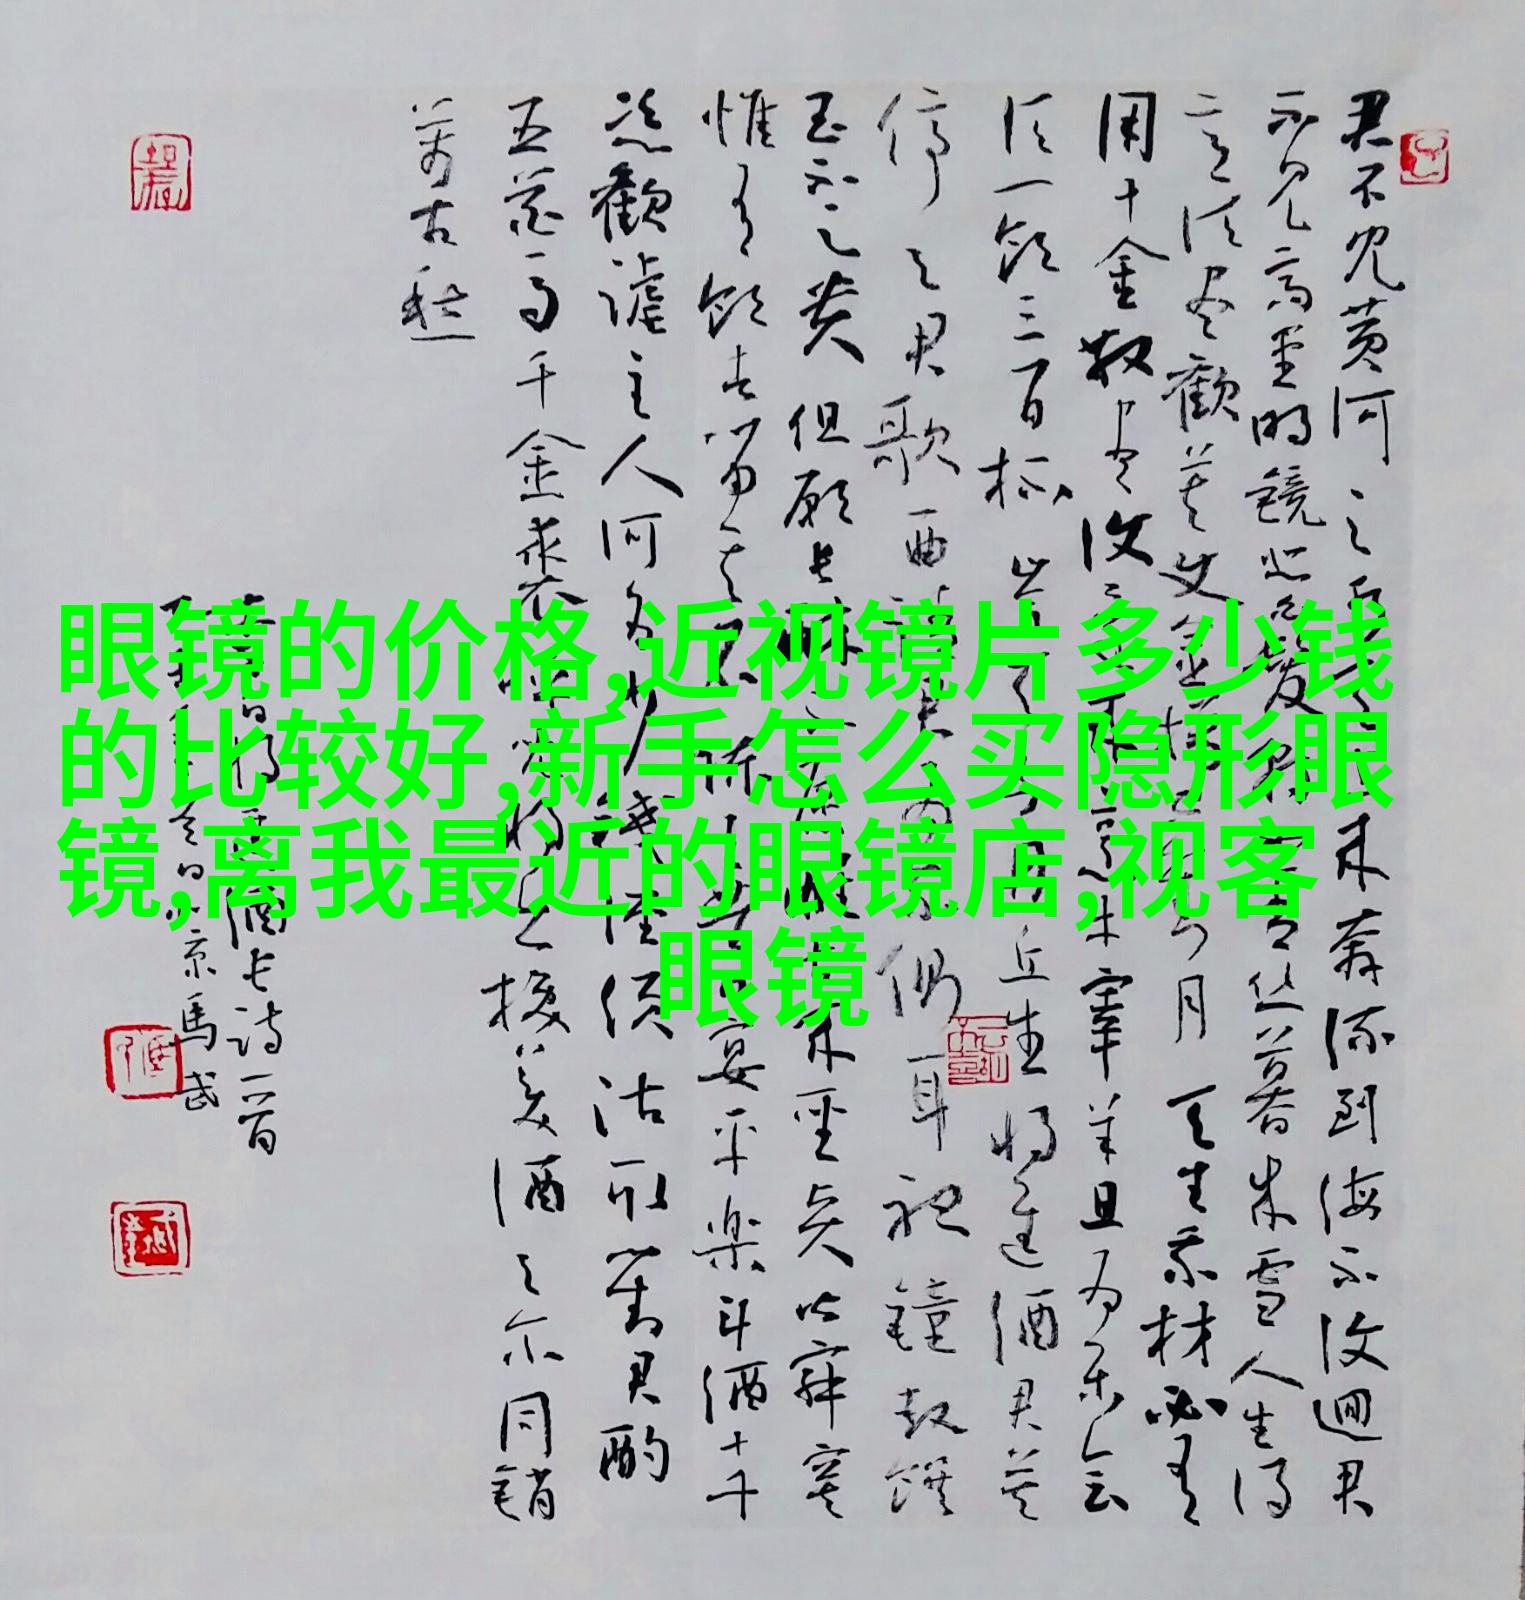 眼镜的价格,近视镜片多少钱
的比较好,新手怎么买隐形眼
镜,离我最近的眼镜店,视客
眼镜
君不见黄河之水天上来奔流到海不復迴君
不见高堂明镜悲白髮朝如青丝暮成雪人生得
意须尽歡莫使金樽空对月天生我材必有
用千金散尽復还来烹牛宰羊且为乐会
须一饮三百杯岑夫子丹丘生将进酒君莫
停与君歌一曲請君为我侧耳听鐘鼓饌
玉不足贵但願长醉不願醒古来聖贤皆寂寞
惟有饮者留其名陈王昔时宴平楽斗酒十千
恣歡謔主人何为言少錢徑须沽取对君酌
五花马千金裘呼儿将出换美酒与尔同銷
萬古愁
李白将進酒长诗一首
京馬武